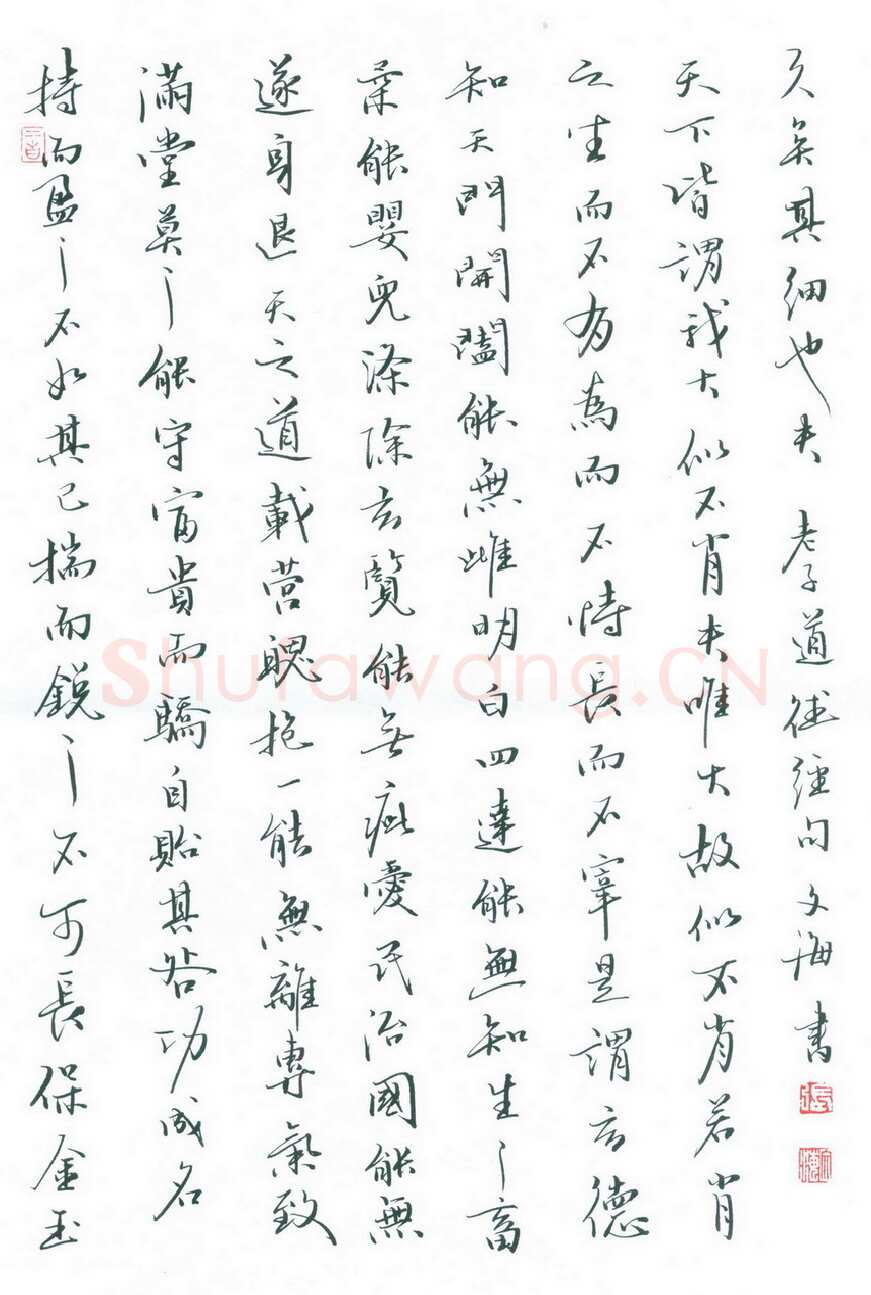 持而盈之不如其已揣而銳之不可長保金玉
滿堂莫之能守富貴而驕自貽其咎功成名
遂身退天之道載營魄抱一能無離專氣致
柔能嬰兒滌除玄覽能无疵愛民治國能無
知天門開闔能無雌明白四達能無知生之畜
之生而不有為而不恃長而不宰是謂玄德
天下皆謂我大似不肖夫唯大故似不肖若肖
久矣其細也夫 老子道德經句 文海書
Shufawang.CN